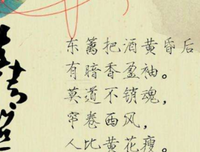 东篱把酒黄昏后
有暗香盈袖。
莫道不销魂，
帘卷西风，
人比黄花瘦。